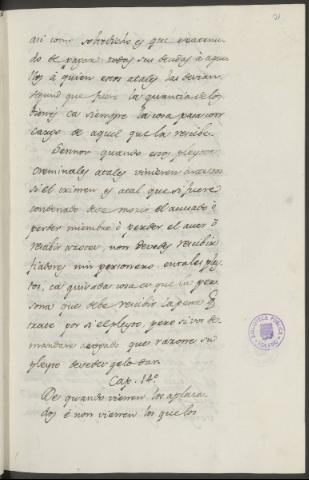 asi como sobredicho es que
do de pagar todas sus deudas á aque
llos á quien estos atales las devian
segund que fuere la quantia de los
bienes ca siempre la cosa pasa con
cargo de aquel que la recibe.
Sennor quando estos pleytos
creminales atales vinieren ante vos
si el crimen es atal que si fuere
condenado deve morir el acusado ó
perder miembro ó perder el aver ó
recibir azotes, non devedes recibir
fiadores nin personero en tales pley
tos, ca guisada cosa es que la per
sona que debe recibir la pena
trate por si el pleyto, pero si vos de
mandare abogado que razone su
pleyto devedes gelo dar.
Cap. 14.º
De quando vienen los aplaza
dos é non vienen los que los
BIBLIOTECA PUBLICA
TOLEDO